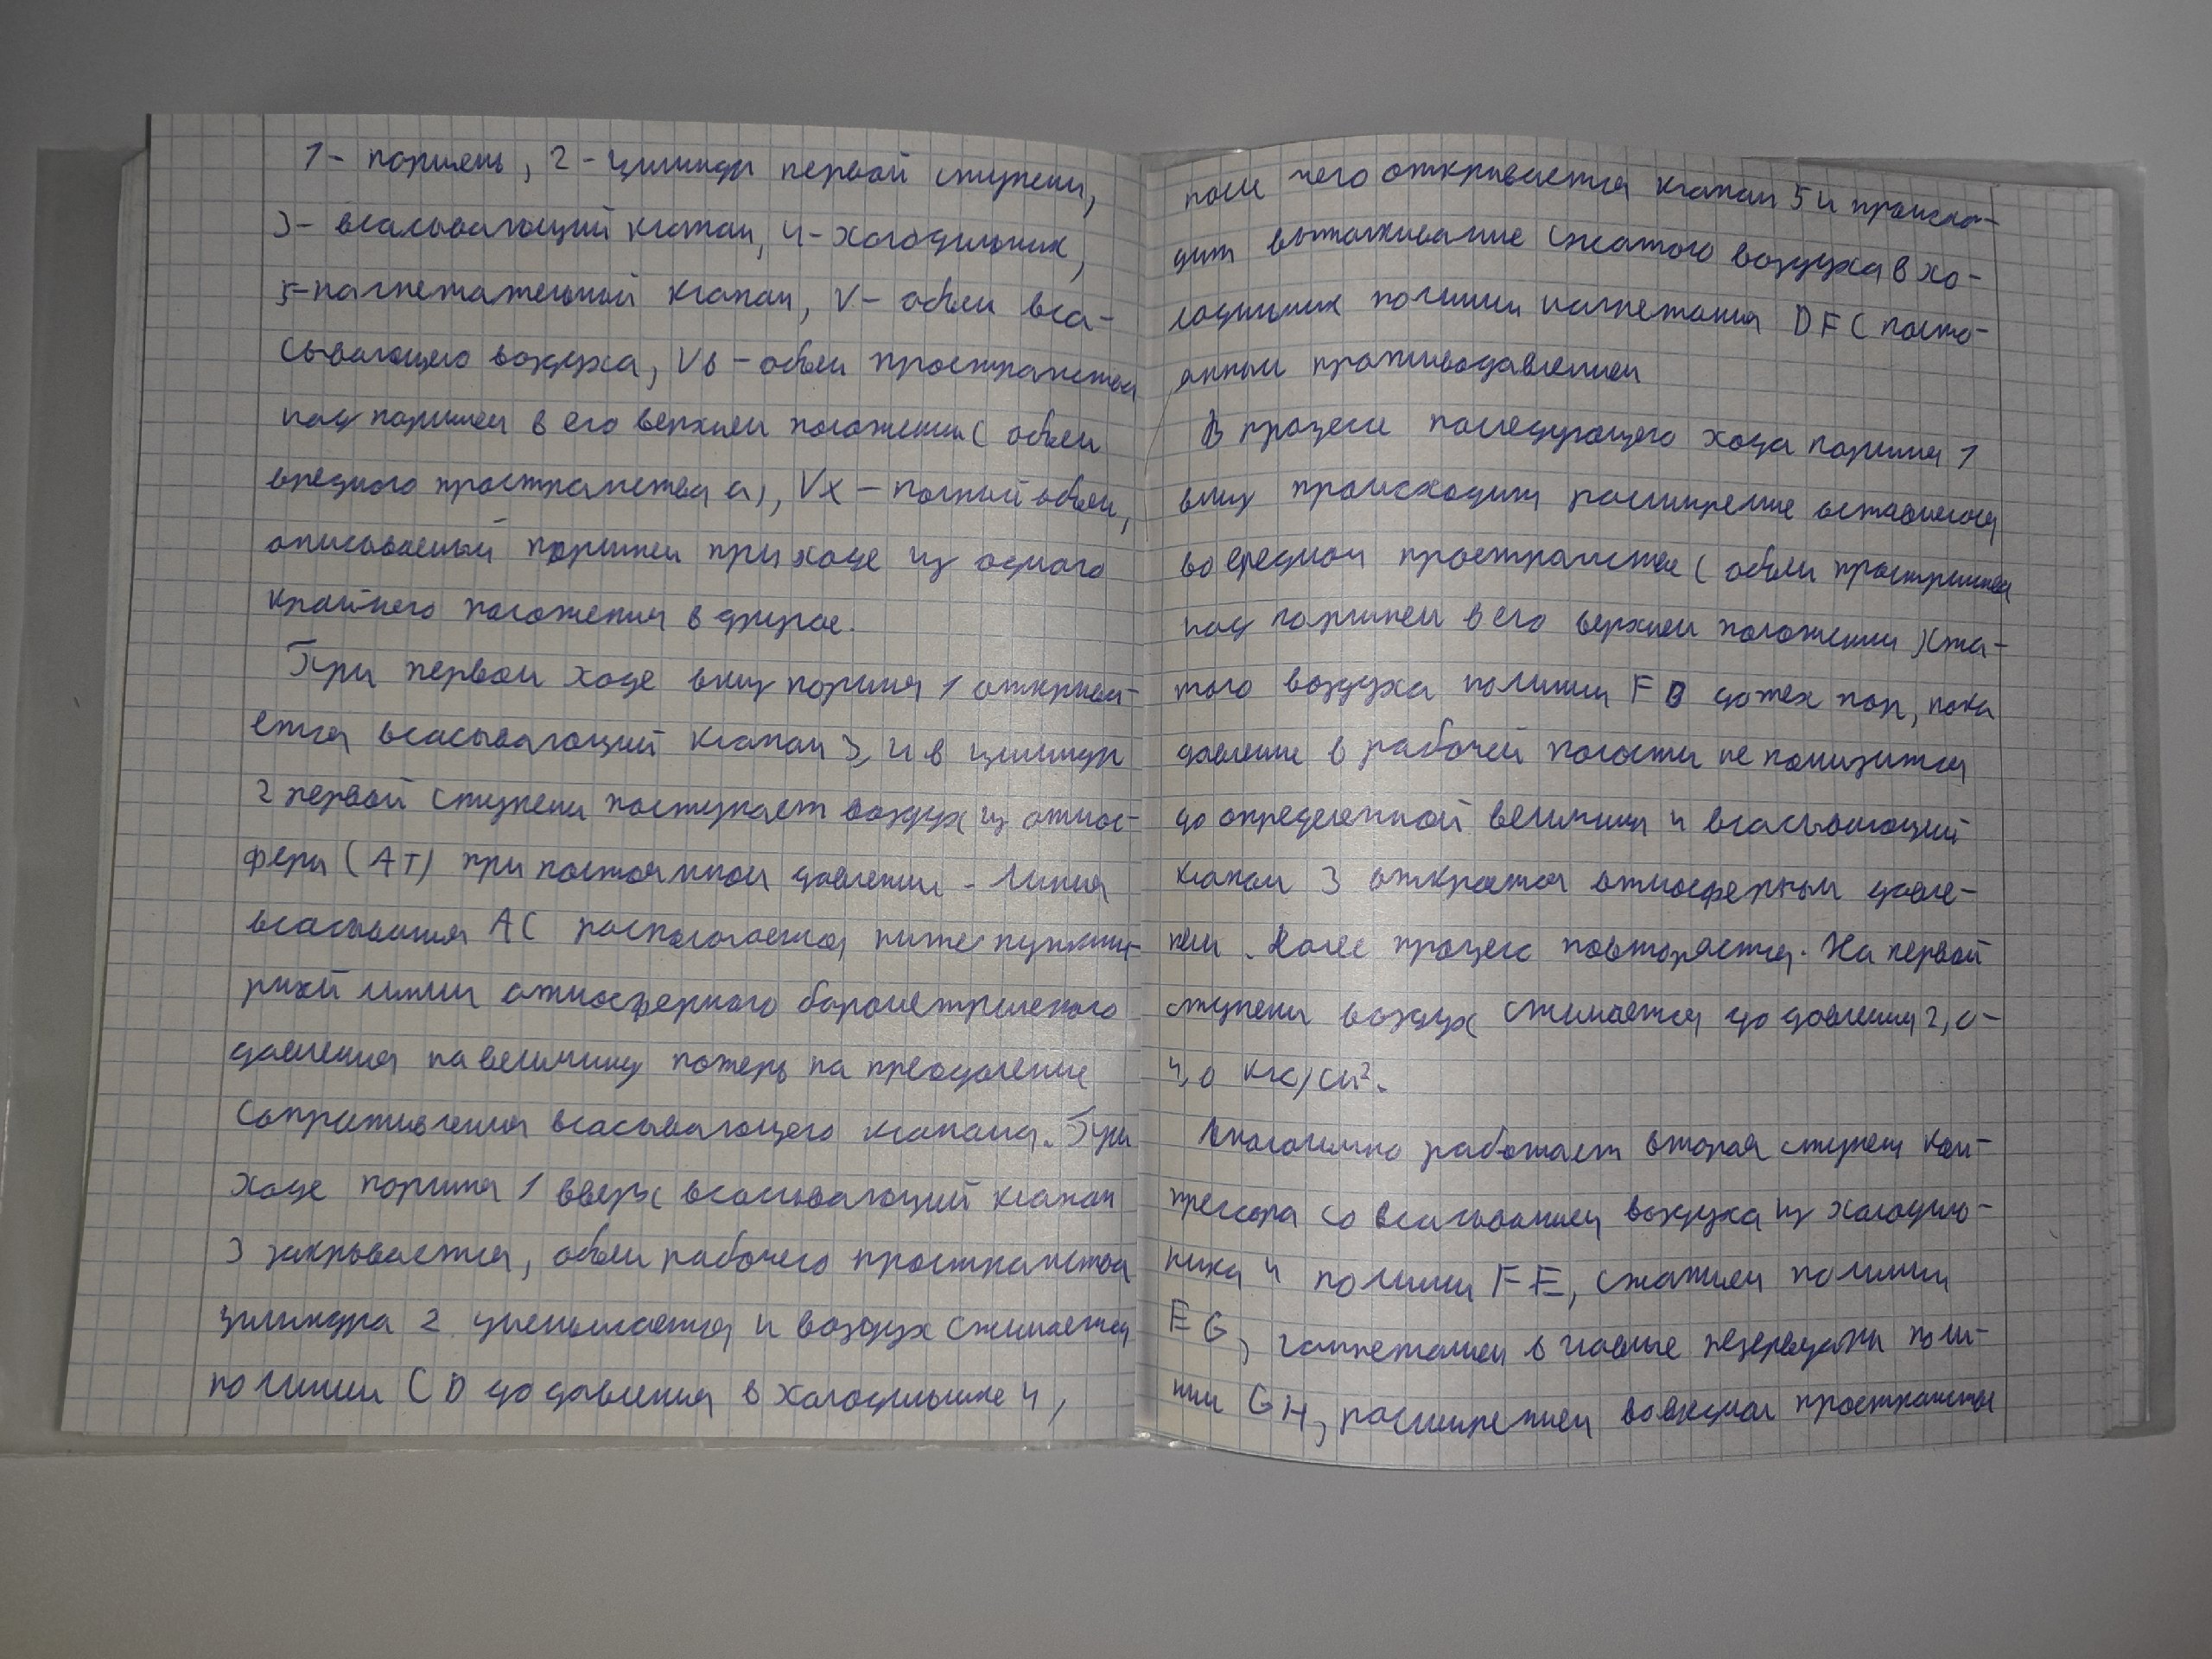 1- поршень, 2- цилиндр первой ступени,
3- всасывающий клапан, 4- холодильник,
5-нагнетательный клапан, V- объем вса-
сывающего воздуха, Vв - объем пространства
над поршнем в его верхнем положении ( объем
вредного пространства а), Vх - полный объем,
описываемый поршнем при ходе из одного
крайнего положения в другое.
При первом ходе вниз поршня 1 открыва-
ется всасывающий клапан 3, и в цилиндр
2 первой ступени поступает воздух из атмос-
феры (АТ) при постоянном давлении - линия
всасывания АС располагается ниже пункти-
рной линии атмосферного барометрического
давления на величину потерь на преодоление
сопротивления всасывающего клапана. При
ходе поршня 1 вверх всасывающий клапан
3 закрывается, объем рабочего пространства
цилиндра 2 уменьшается и воздух сжимается
по линии СD до давления в холодильнике 4,
после чего открывается клапан 5 и происхо-
дит выталкивание сжатого воздуха в хо-
лодильник по линии нагнетания DF( посто-
янным противодавлением
В процессе последующего хода поршня 1
вниз происходит расширение оставшегося
во вредном пространстве ( объем пространства
над поршнем в его верхнем положении ) сжа-
того воздуха по линии FB до тех пор, пока
давление в рабочей полости не понизится
до определенной величины и всасывающий
клапан 3 откроется атмосферным давле-
нием. Далее процесс повторяется. На первой
ступени воздух сжимается до давления 2,0-
4,0 кгс/см².
Аналогично работает вторая ступень ком-
прессора со всасыванием воздуха из холодиль-
ника 4 по линии FE, сжатием по линии
EG, нагнетанием в главные резервуары по ли-
нии GH, расширением во вредном пространстве